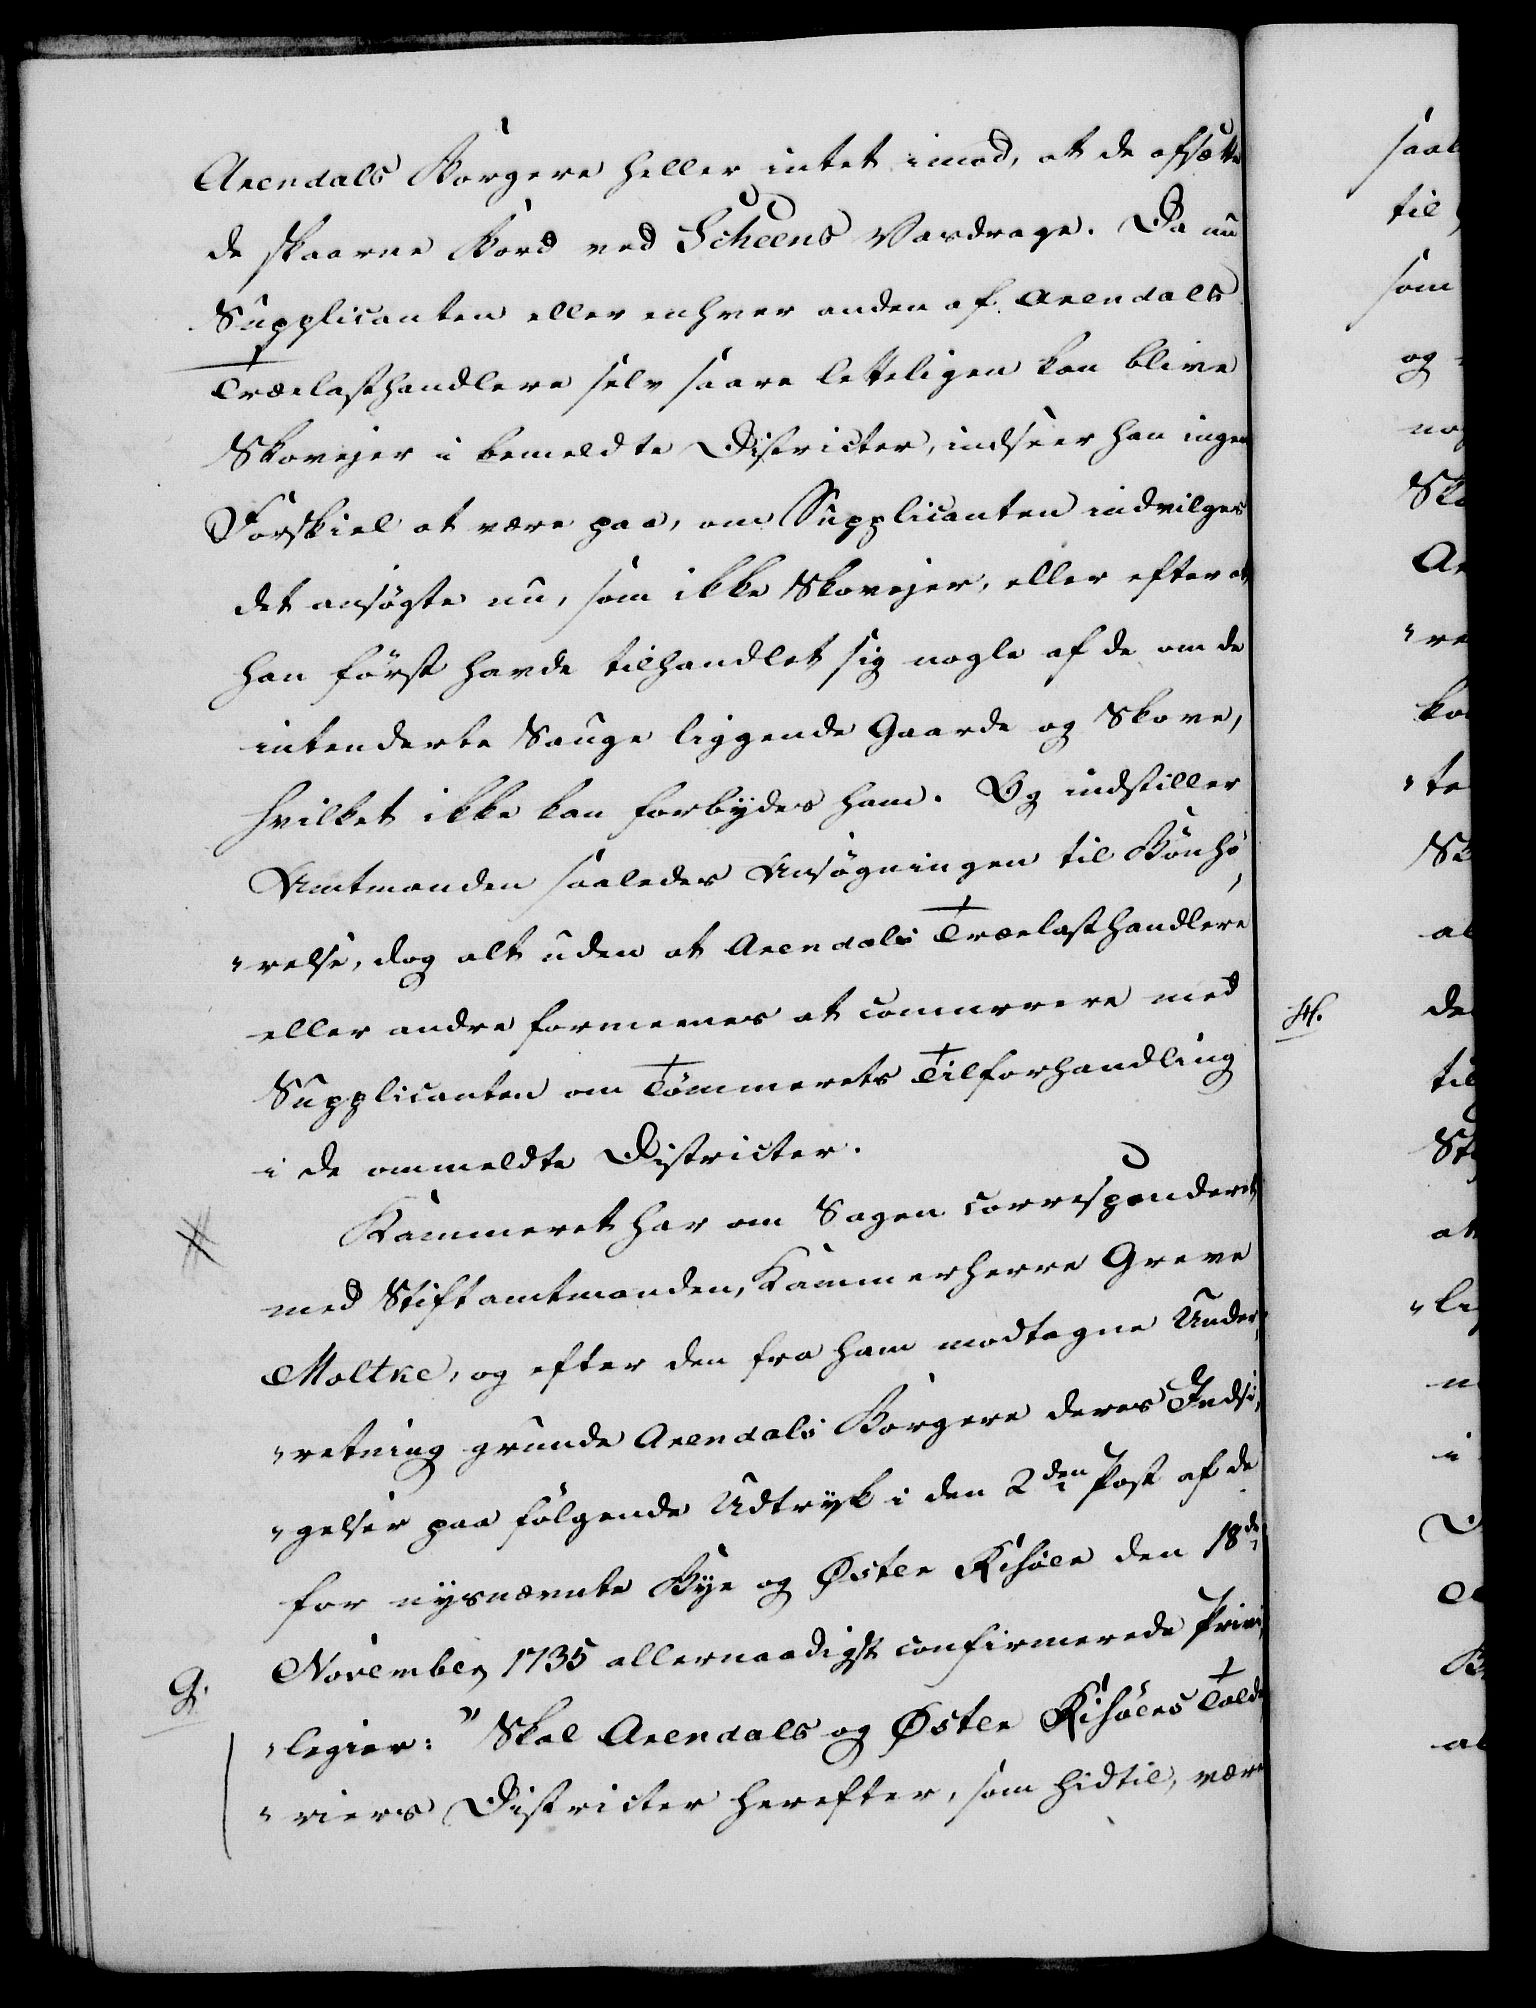 Arendals Borgere heller intet imod, at de afsætte
de skaarne Bord ved Scheens Vasdrage. Da nu
Supplicanten eller enhver anden af Arendals
Trælasthandlere selv saare letteligen kan blive
Skovejer i bemeldte Districter, indseer han ingen
Forskiel at være paa, om Supplicanten indvilges
det ansøgte nu, som ikke Skovejer, eller efter at
han først havde tilhandlet sig nogle af de om de
intenderte Sauge liggende Gaarde og Skove,
hvilket ikke kan forbydes ham. Og indstiller
Amtmanden saaledes Ansøgningen til Bønhø,
"relse, dog alt uden at Arendals Trælasthandlere
eller andre formeenes at concurrere med
Supplicanten om Tømmerets Tilforhandling
i de ommeldte Districter.
Kammeret har om Sagen corresponderet
med Stiftamtmanden, Kammerherre Greve
Moltke, og efter den fra ham modtagne Under,
"retning grunde Arendals Borgere deres Indsi,
"gelser paa følgende Udtryk i den 2den Post af de
for nysnævnte Bye og Øster Risöer den 18de
November 1735 allernaadigst confirmerede Privi,
"legier: "Skal Arendals og Øster Risöers Tolde,
"riers Districter herefter, som hidtil, være
9.
saal
til
som
og
nog
Sko
Ar
"re
kan
"te
Sk
al
H.
de
til
St
at
"li
n
i
al